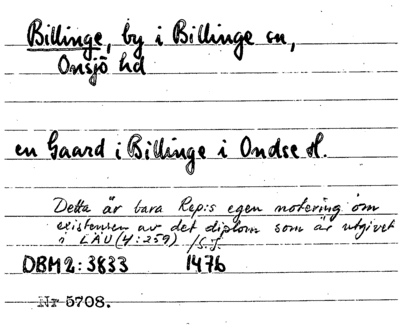 Billinge, by i Billinge sn,
Onsjö hd
en Gaard i Billinge i Ondse H.
Detta är bara Rep:s egen notering om
existensen av det diplom som är utgivet
i LÄU (4:259) /S.J.
DBM 2:3833 1476
Nr 5708.